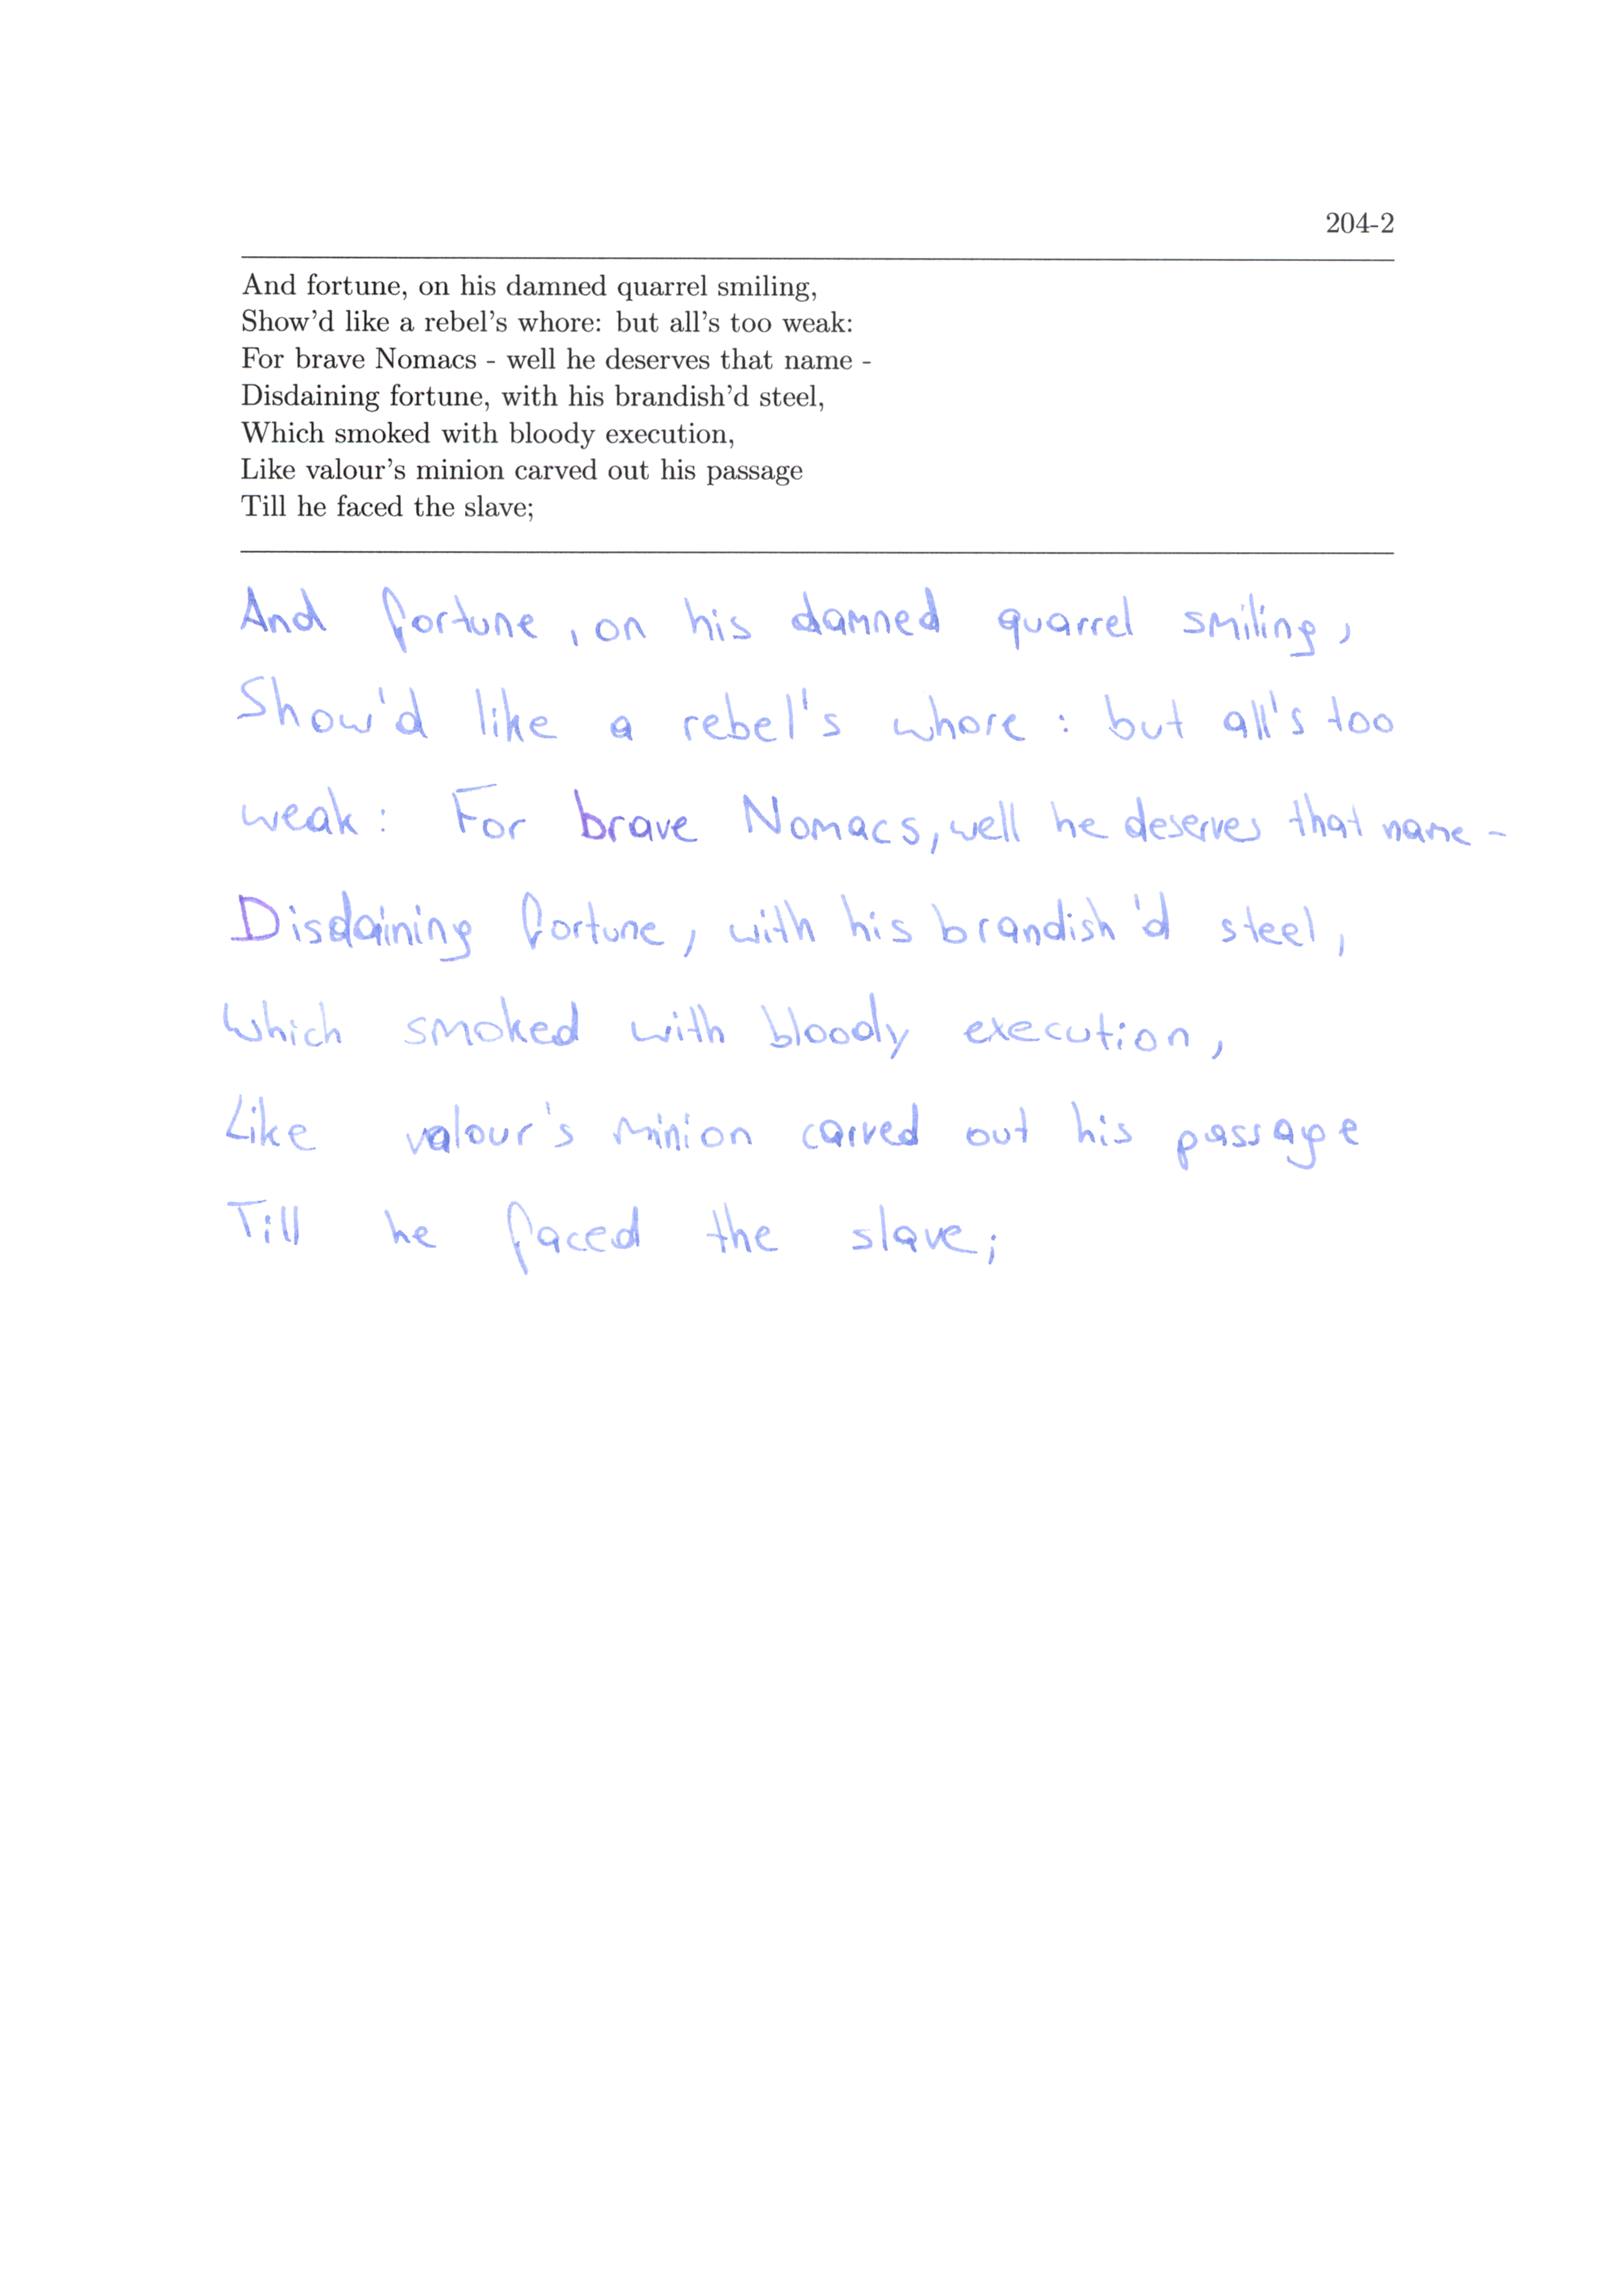 204-2
And fortune, on his damned quarrel smiling,
Show'd like a rebel's whore: but all's too weak:
For brave Nomacs - well he deserves that name -
Disdaining fortune, with his brandish'd steel,
Which smoked with bloody execution,
Like valour's minion carved out his passage
Till he faced the slave;
And fortune, on his damned quarrel smiling,
Show'd like a rebel's whore : but all's too
weak: For brave Nomacs, well he deserves that name -
Disdaining fortune, with his brandish'd steel,
Which smoked with bloody execution,
Like valour's minion carved out his passage
Till he faced the slave;